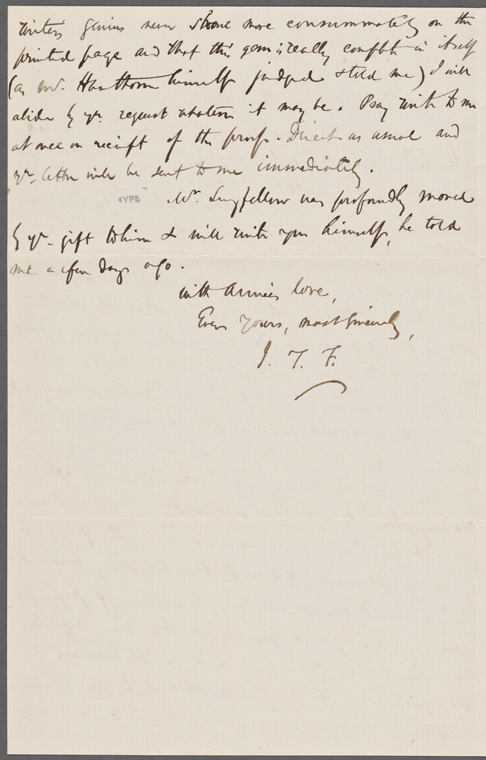 writers genius never shone more consummately on the
printed page and that this gem is really complete in itself
(as Mr. Hawthorne himself judged & told me) I will
abide by yr. request whatever it may be. Pray write to me
at once on receipt of the proof. Direct as usual and
yr. letter will be sent to me immediately.
NYPB
Mr. Longfellow was profoundly moved
by yr. gift to him & will write you himself, he told
me a few days ago.
With Annie's love,
Ever Yours, most sincerely,
J. T. F.